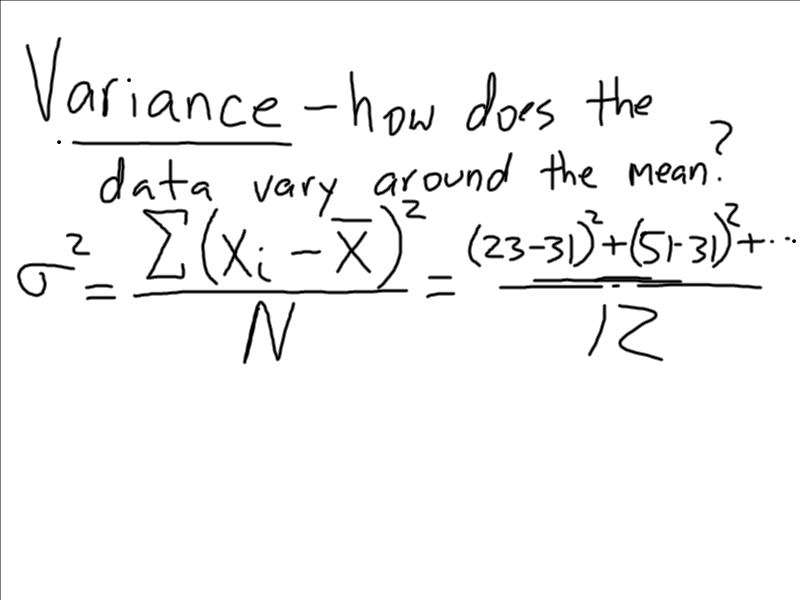 Variance - how does the
data vary around the mean?
σ² = Σ(Xᵢ - X̅)² / N = (23-31)²+(51-31)²+... / 12